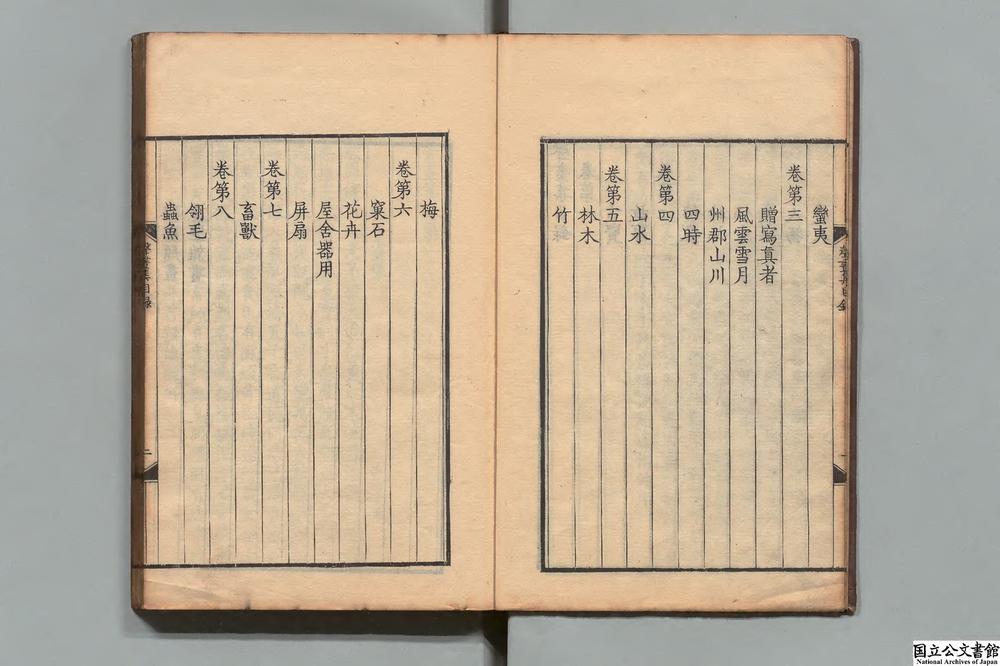 蠻夷
卷第三
贈寫真者
風雲雪月
州郡山川
四時
卷第四
山水
卷第五
林木
竹
梅
卷第六
窠石
花卉
屋舍器用
屏扇
卷第七
畜獸
卷第八
翎毛
蟲魚
国立公文書館
National Archives of Japan